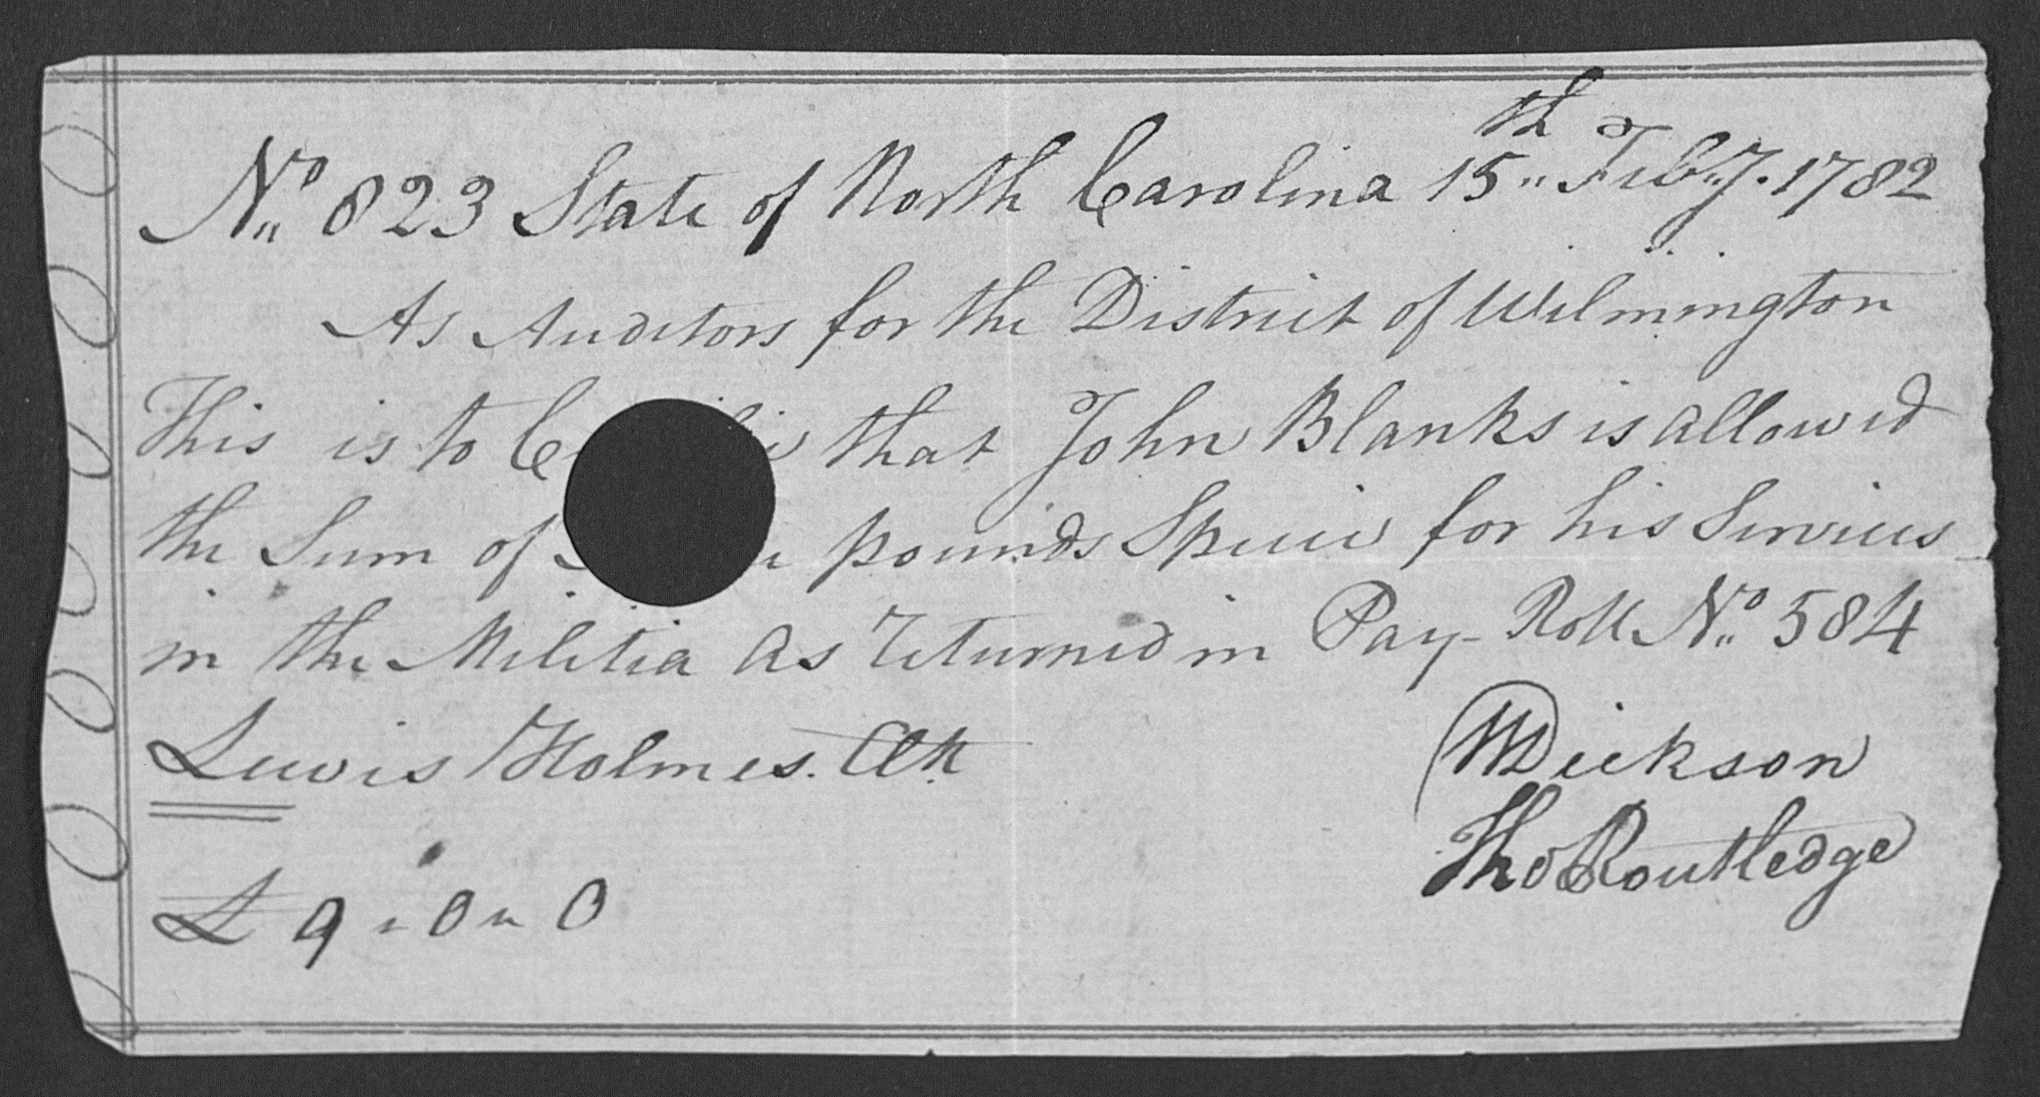 No 823 State of North Carolina 15th Feby. 1782
As Auditors for the District of Wilmington
This is to that John Blanks is allowed
the Sum of pounds Specie for his Services
in the Militia as returned in Pay-Roll No 584
Lewis Holmes. Clk
Dickson
Tho Routledge
£ 9 " 0 " 0